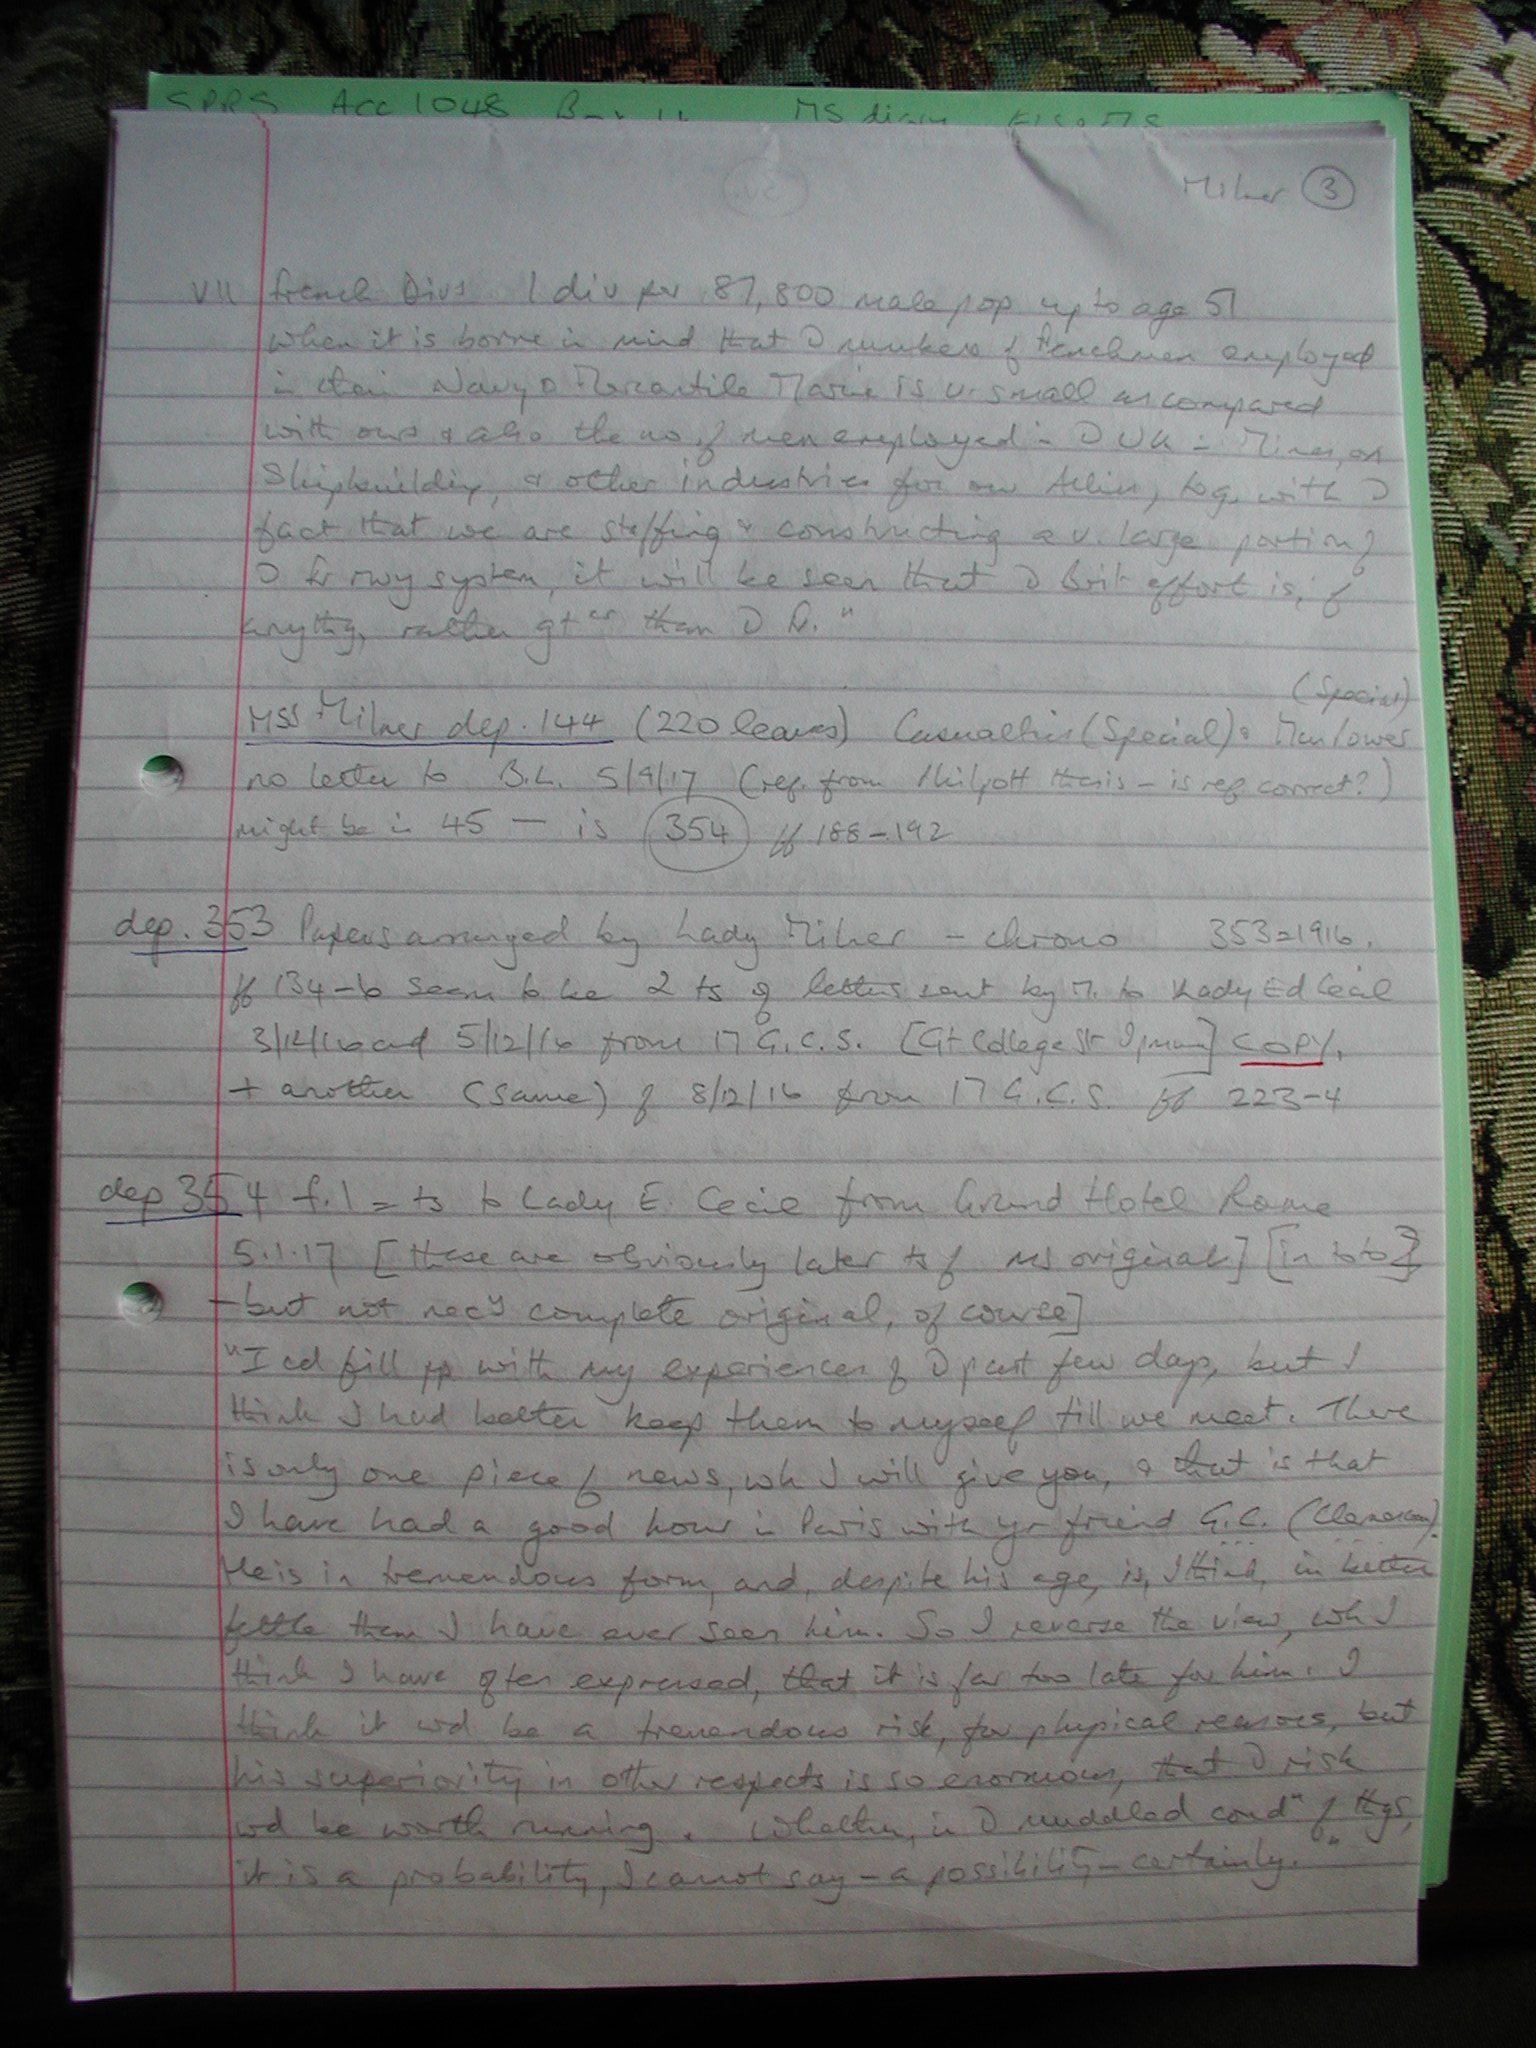 SPRS Acc 1048 Box 11 MS diary
Milner 3
VII French Divs 1 div per 87,800 male pop up to age 51
when it is borne in mind that D numbers of Frenchmen employed
in their Navy & Mercantile Marine is v. small as compared
with ours & also the no. of men employed in D UK in Mines, on
Shipbuilding, & other industries for our Allies, tog. with D
fact that we are staffing & constructing a v. large portion of
D Fr rwy system, it will be seen that D Brit effort is, if
anythg, rather gter than D Fr."
(Special)
MSS Milner dep. 144 (220 leaves) Casualties (Special) & Manpower
no letter to B.L. 5/9/17 (ref. from Philpott thesis – is ref correct?)
might be in 45 — is 354 ff 188–192
dep. 353 Papers arranged by Lady Milner – chrono 353=1916.
ff 134–6 seem to be 2 ts of letters sent by M. to Lady Ed Cecil
3/12/16 and 5/12/16 from 17 G.C.S. [Gt College St I presume] COPY.
+ another (same) of 8/12/16 from 17 G.C.S. ff 223–4
dep 354 f.1 = ts to Lady E. Cecil from Grand Hotel Rome
5.1.17 [these are obviously later ts of ms original] [in toto]
– but not necy complete original, of course]
"I cd fill pp with my experiences of D past few days, but I
think I had better keep them to myself till we meet. There
is only one piece of news, wh I will give you, & that is that
I have had a good hour in Paris with yr friend G.C. (Clemenceau).
He is in tremendous form, and, despite his age, is, I think, in better
fettle than I have ever seen him. So I reverse the view, wh I
think I have often expressed, that it is far too late for him. I
think it wd be a tremendous risk, for physical reasons, but
his superiority in other respects is so enormous, that D risk
wd be worth running. Whether, in D muddled condn of thgs,
it is a probability, I cannot say – a possibility – certainly."